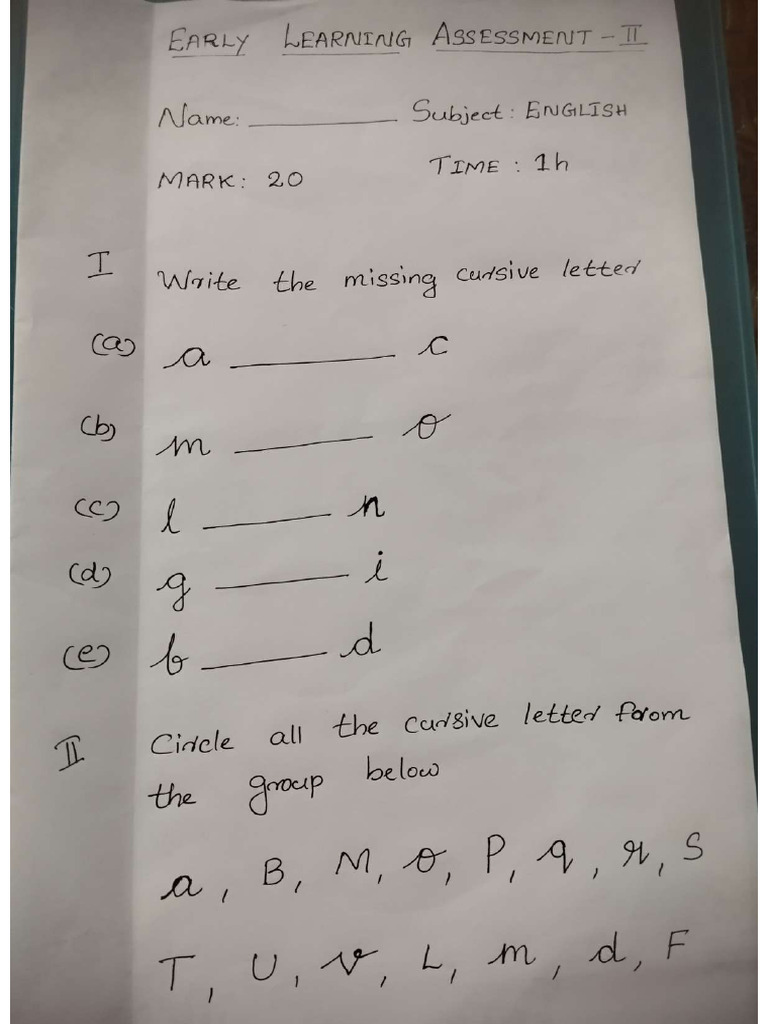 EARLY LEARNING ASSESSMENT - II
Name: __________ Subject: ENGLISH
MARK: 20 TIME: 1h
I Write the missing cursive letter
(a) a __________ c
(b) m __________ o
(c) l __________ n
(d) g __________ i
(e) b __________ d
II Circle all the cursive letter from
the group below
a, B, M, o, P, q, r, S
T, U, v, L, m, d, F